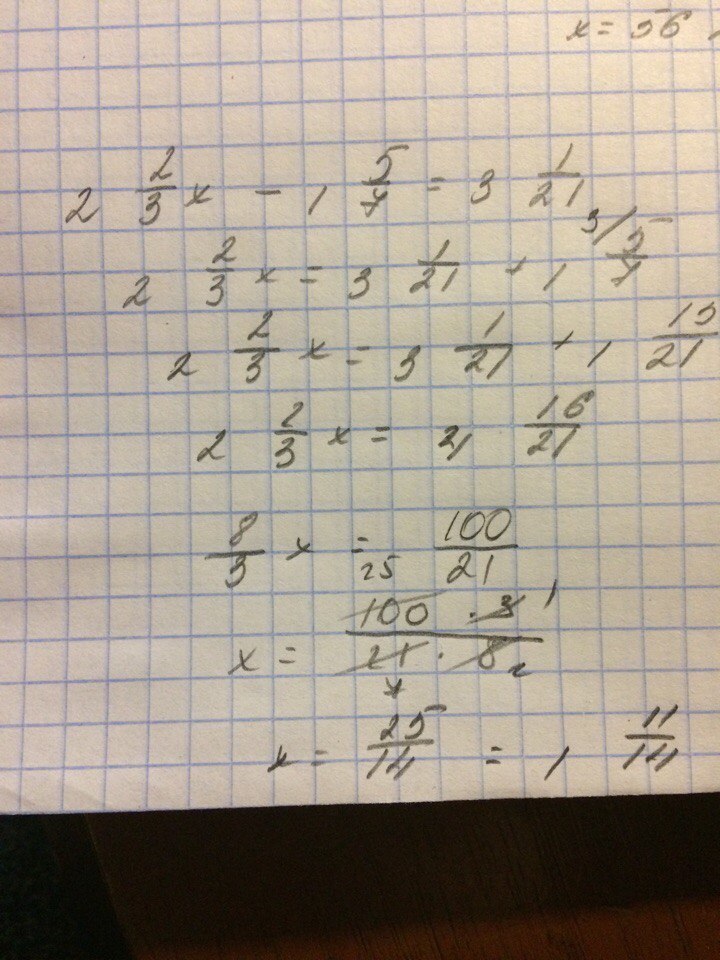 x = 56
2 2/3 x - 1 5/7 = 3 1/21
2 2/3 x = 3 1/21 + 1 3/ 5/7
2 2/3 x = 3 1/21 + 1 15/21
2 2/3 x = 4 16/21
8/3 x = 100/21
x = 25 100 · 3 1 / 21 · 8 7 2
x = 25/14 = 1 11/14